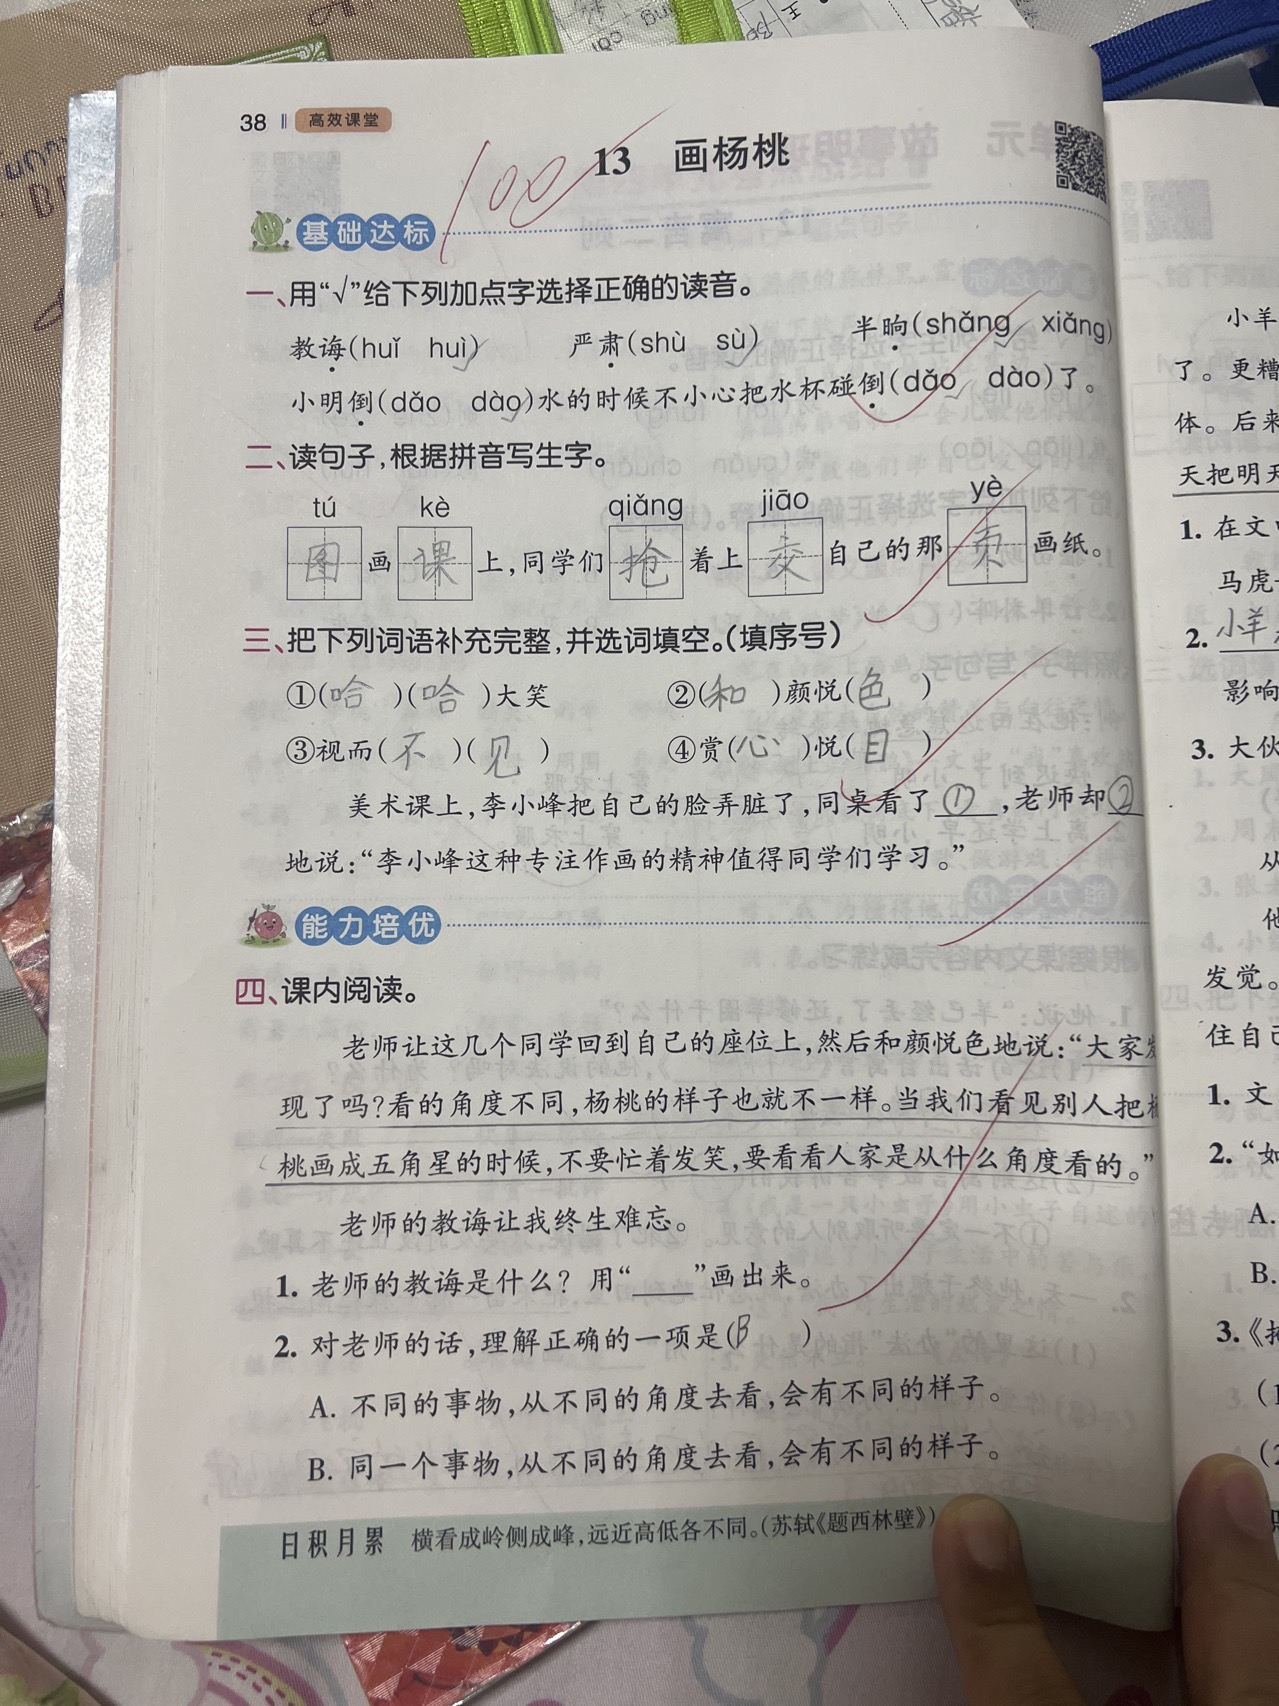 38 高效课堂
13 画杨桃
100
基础达标
一、用“√”给下列加点字选择正确的读音。
教诲(huǐ huì✓) 严肃(shù sù✓) 半晌(shǎng✓ xiǎng)
小明倒(dǎo dào✓)水的时候不小心把水杯碰倒(dǎo✓ dào)了。
二、读句子,根据拼音写生字。
tú kè qiǎng jiāo yè
图画课上,同学们抢着上交自己的那页画纸。
三、把下列词语补充完整,并选词填空。(填序号)
①(哈)(哈)大笑 ②(和)颜悦(色)
③视而(不)(见) ④赏(心)悦(目)
美术课上,李小峰把自己的脸弄脏了,同桌看了①,老师却②
地说:“李小峰这种专注作画的精神值得同学们学习。”
能力培优
四、课内阅读。
老师让这几个同学回到自己的座位上,然后和颜悦色地说:“大家发
现了吗?看的角度不同,杨桃的样子也就不一样。当我们看见别人把杨
桃画成五角星的时候,不要忙着发笑,要看看人家是从什么角度看的。”
老师的教诲让我终生难忘。
1. 老师的教诲是什么? 用“____”画出来。
2. 对老师的话,理解正确的一项是(B)
A. 不同的事物,从不同的角度去看,会有不同的样子。
B. 同一个事物,从不同的角度去看,会有不同的样子。
日积月累 横看成岭侧成峰,远近高低各不同。(苏轼《题西林壁》)
小羊
了。更糟
体。后来
天把明天
1. 在文
马虎
2. 小羊
影响
3. 大伙
从
他
发觉。
住自己
1. 文
2. “如
A.
B.
3.《
(1
(2